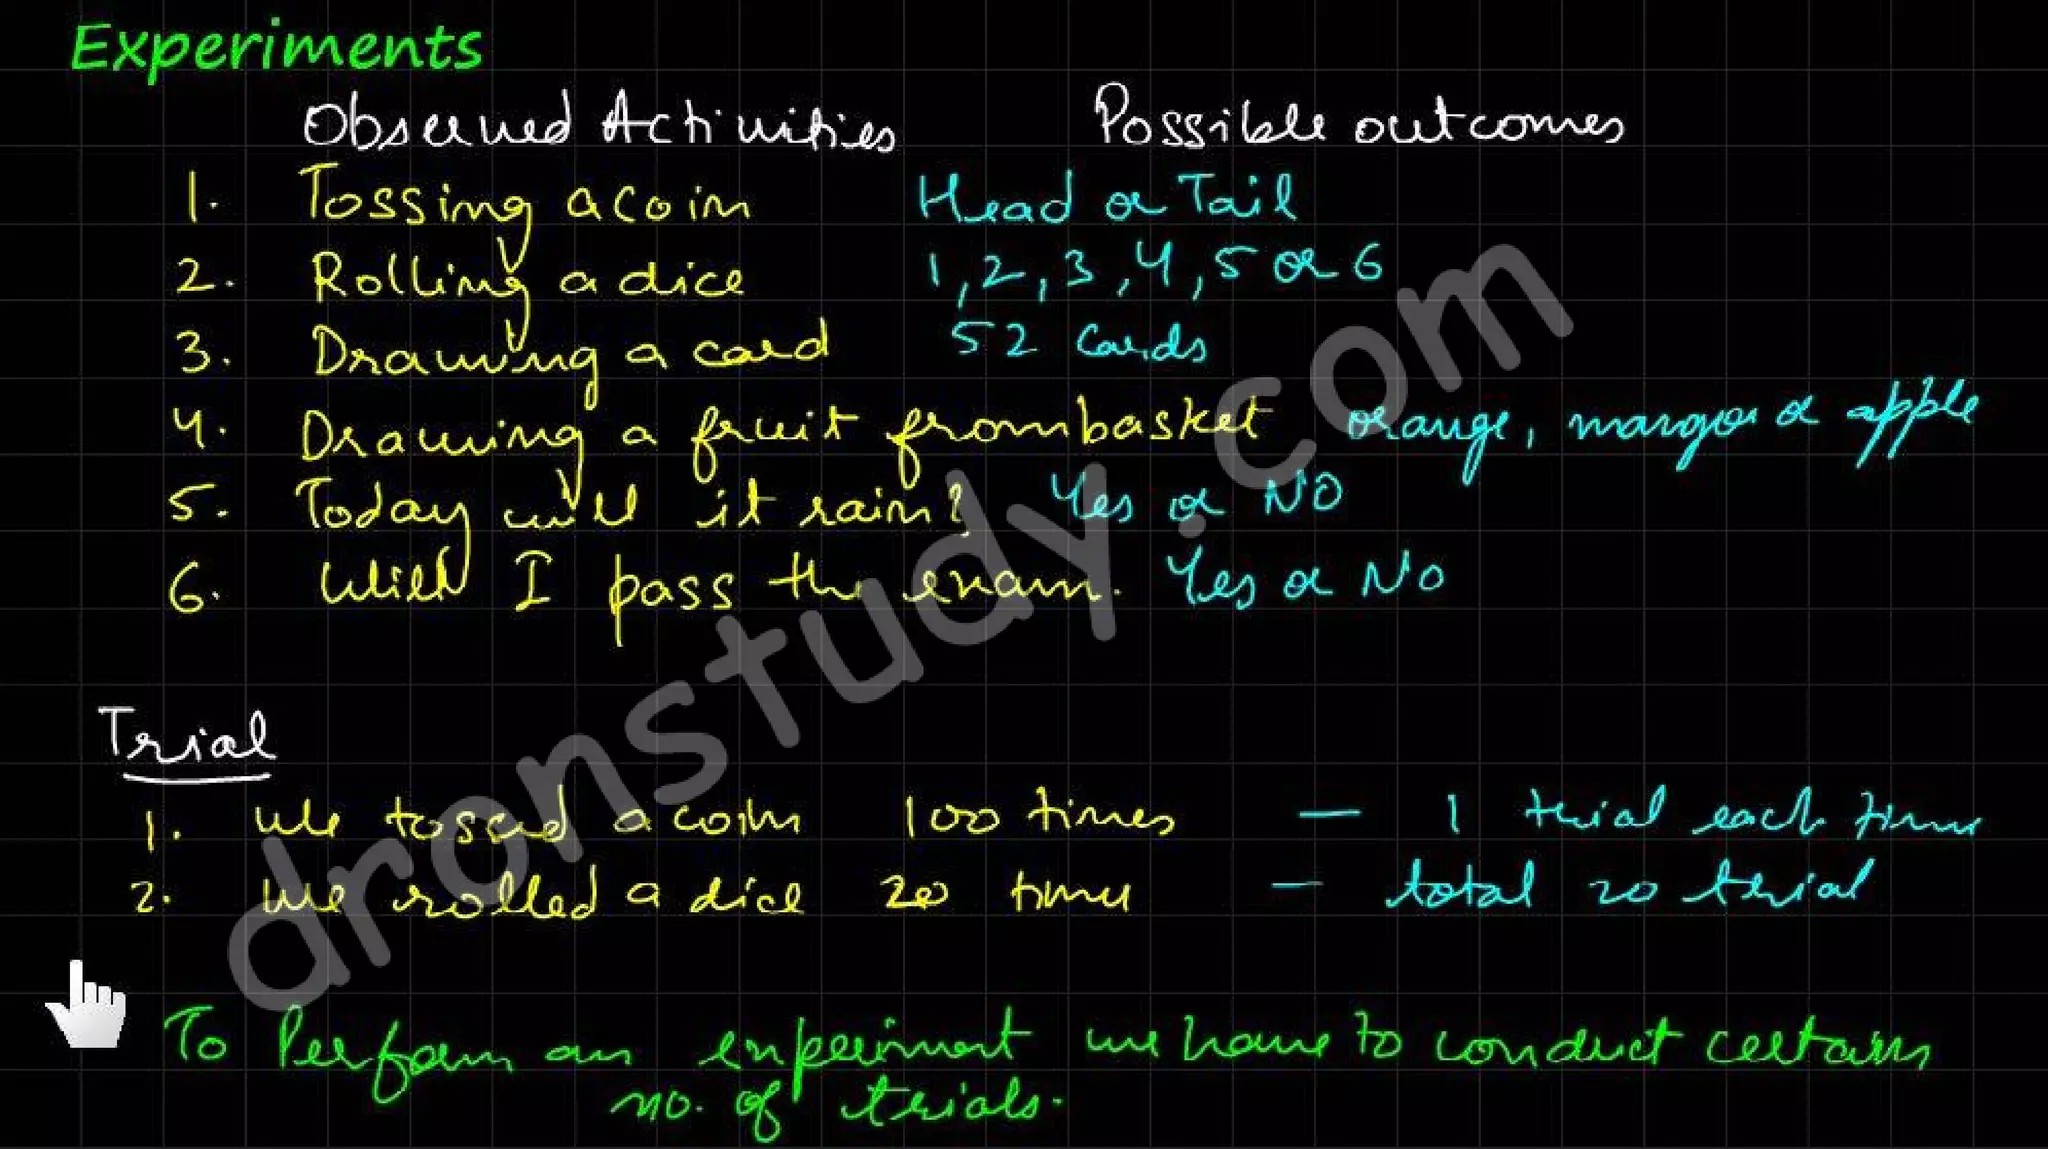 Experiments
Observed Activities Possible outcomes
1. Tossing a coin Head or Tail
2. Rolling a dice 1, 2, 3, 4, 5 or 6
3. Drawing a card 52 cards
4. Drawing a fruit from basket orange, mango or apple
5. Today will it rain? Yes or NO
6. Will I pass the exam. Yes or No
Trial
1. We tossed a coin 100 times — 1 trial each time
2. We rolled a dice 20 time — total 20 trial
To Perform an experiment we have to conduct certain
no. of trials.
dronstudy.com